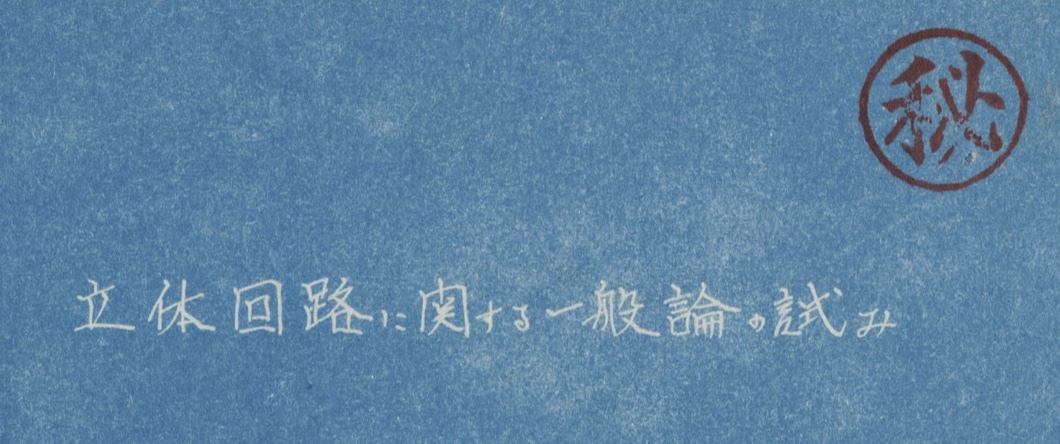 秘
立体回路に関する一般論の試み